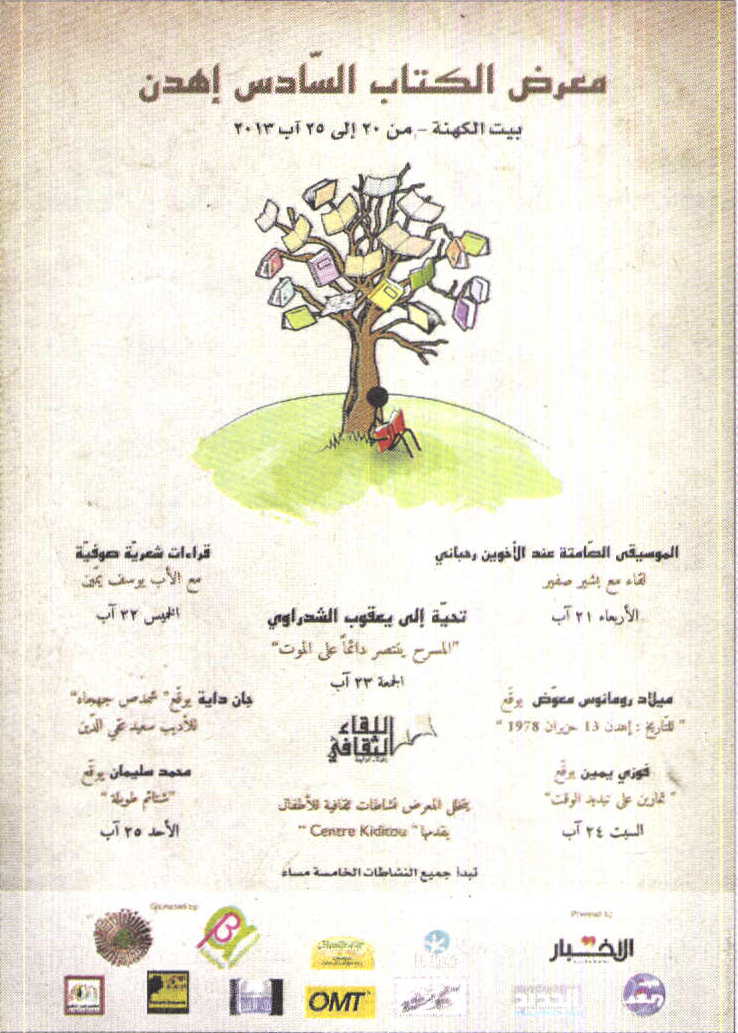 معرض الكتاب السّادس إهدن
بيت الكهنة - من ٢٠ إلى ٢٥ آب ٢٠١٣
الموسيقى الصّامتة عند الأخوين رحباني
لقاء مع بشير صفير
الأربعاء ٢١ آب
قراءات شعريّة صوفيّة
مع الأب يوسف يمّين
الخميس ٢٢ آب
تحيّة إلى يعقوب الشدراوي
"المسرح ينتصر دائماً على الموت"
الجمعة ٢٣ آب
ميلاد رومانوس معوّض يوقّع
"للتّاريخ : إهدن 13 حزيران 1978"
فوزي يمين يوقّع
"تمارين على تبديد الوقت"
السبت ٢٤ آب
جان داية يوقّع
للأديب سعيد تقي الدّين
محمد سليمان يوقّع
"شتائم طويلة"
الأحد ٢٥ آب
اللقاء
الثقافي
يتخلل المعرض نشاطات ثقافية للأطفال
يقدمها "Centre Kiditou"
تبدأ جميع النشاطات الخامسة مساء
Sponsored by
الأخبار
OMT
الحداد